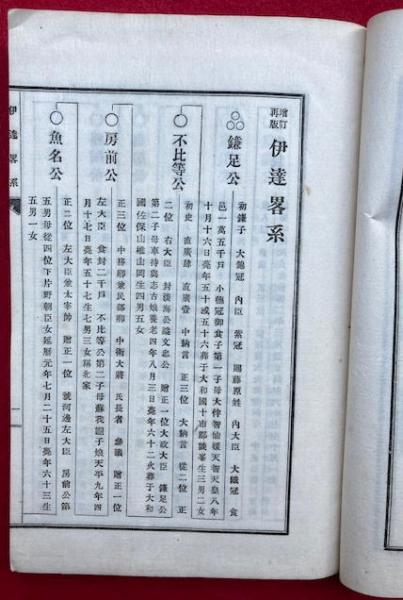 増訂
再版
伊達畧系
鎌足公
初鎌子 大錦冠 內臣 紫冠 賜藤原姓 內大臣 大織冠 食
邑一萬五千戶 小德冠御食子第一子母大伴智仙媛天智天皇八年
十月十六日薨年五十或五十六葬于大和國十市郡談峯生三男二女
不比等公
初史 直廣肆 直廣壹 中納言 正三位 大納言 從二位 正
二位 右大臣 封淡海公諡文忠公 贈正一位大政大臣 鎌足公
第二子母車持與志古娘養老四年八月三日薨年六十二火葬于大和
國佐保山椎山岡生四男五女
房前公
正三位 中務卿兼民部卿 中衞大將 氏長者 參議 贈正一位
左大臣 食封二千戶 不比等公第二子母蘇我媼子娘天平九年四
月十七日薨年五十七生七男三女稱北家
魚名公
正二位 左大臣兼太宰帥 贈正一位 號河邊左大臣 房前公第
五男母從四位下片野朝臣女延曆元年七月二十五日薨年六十三生
五男一女
伊達畧系
一